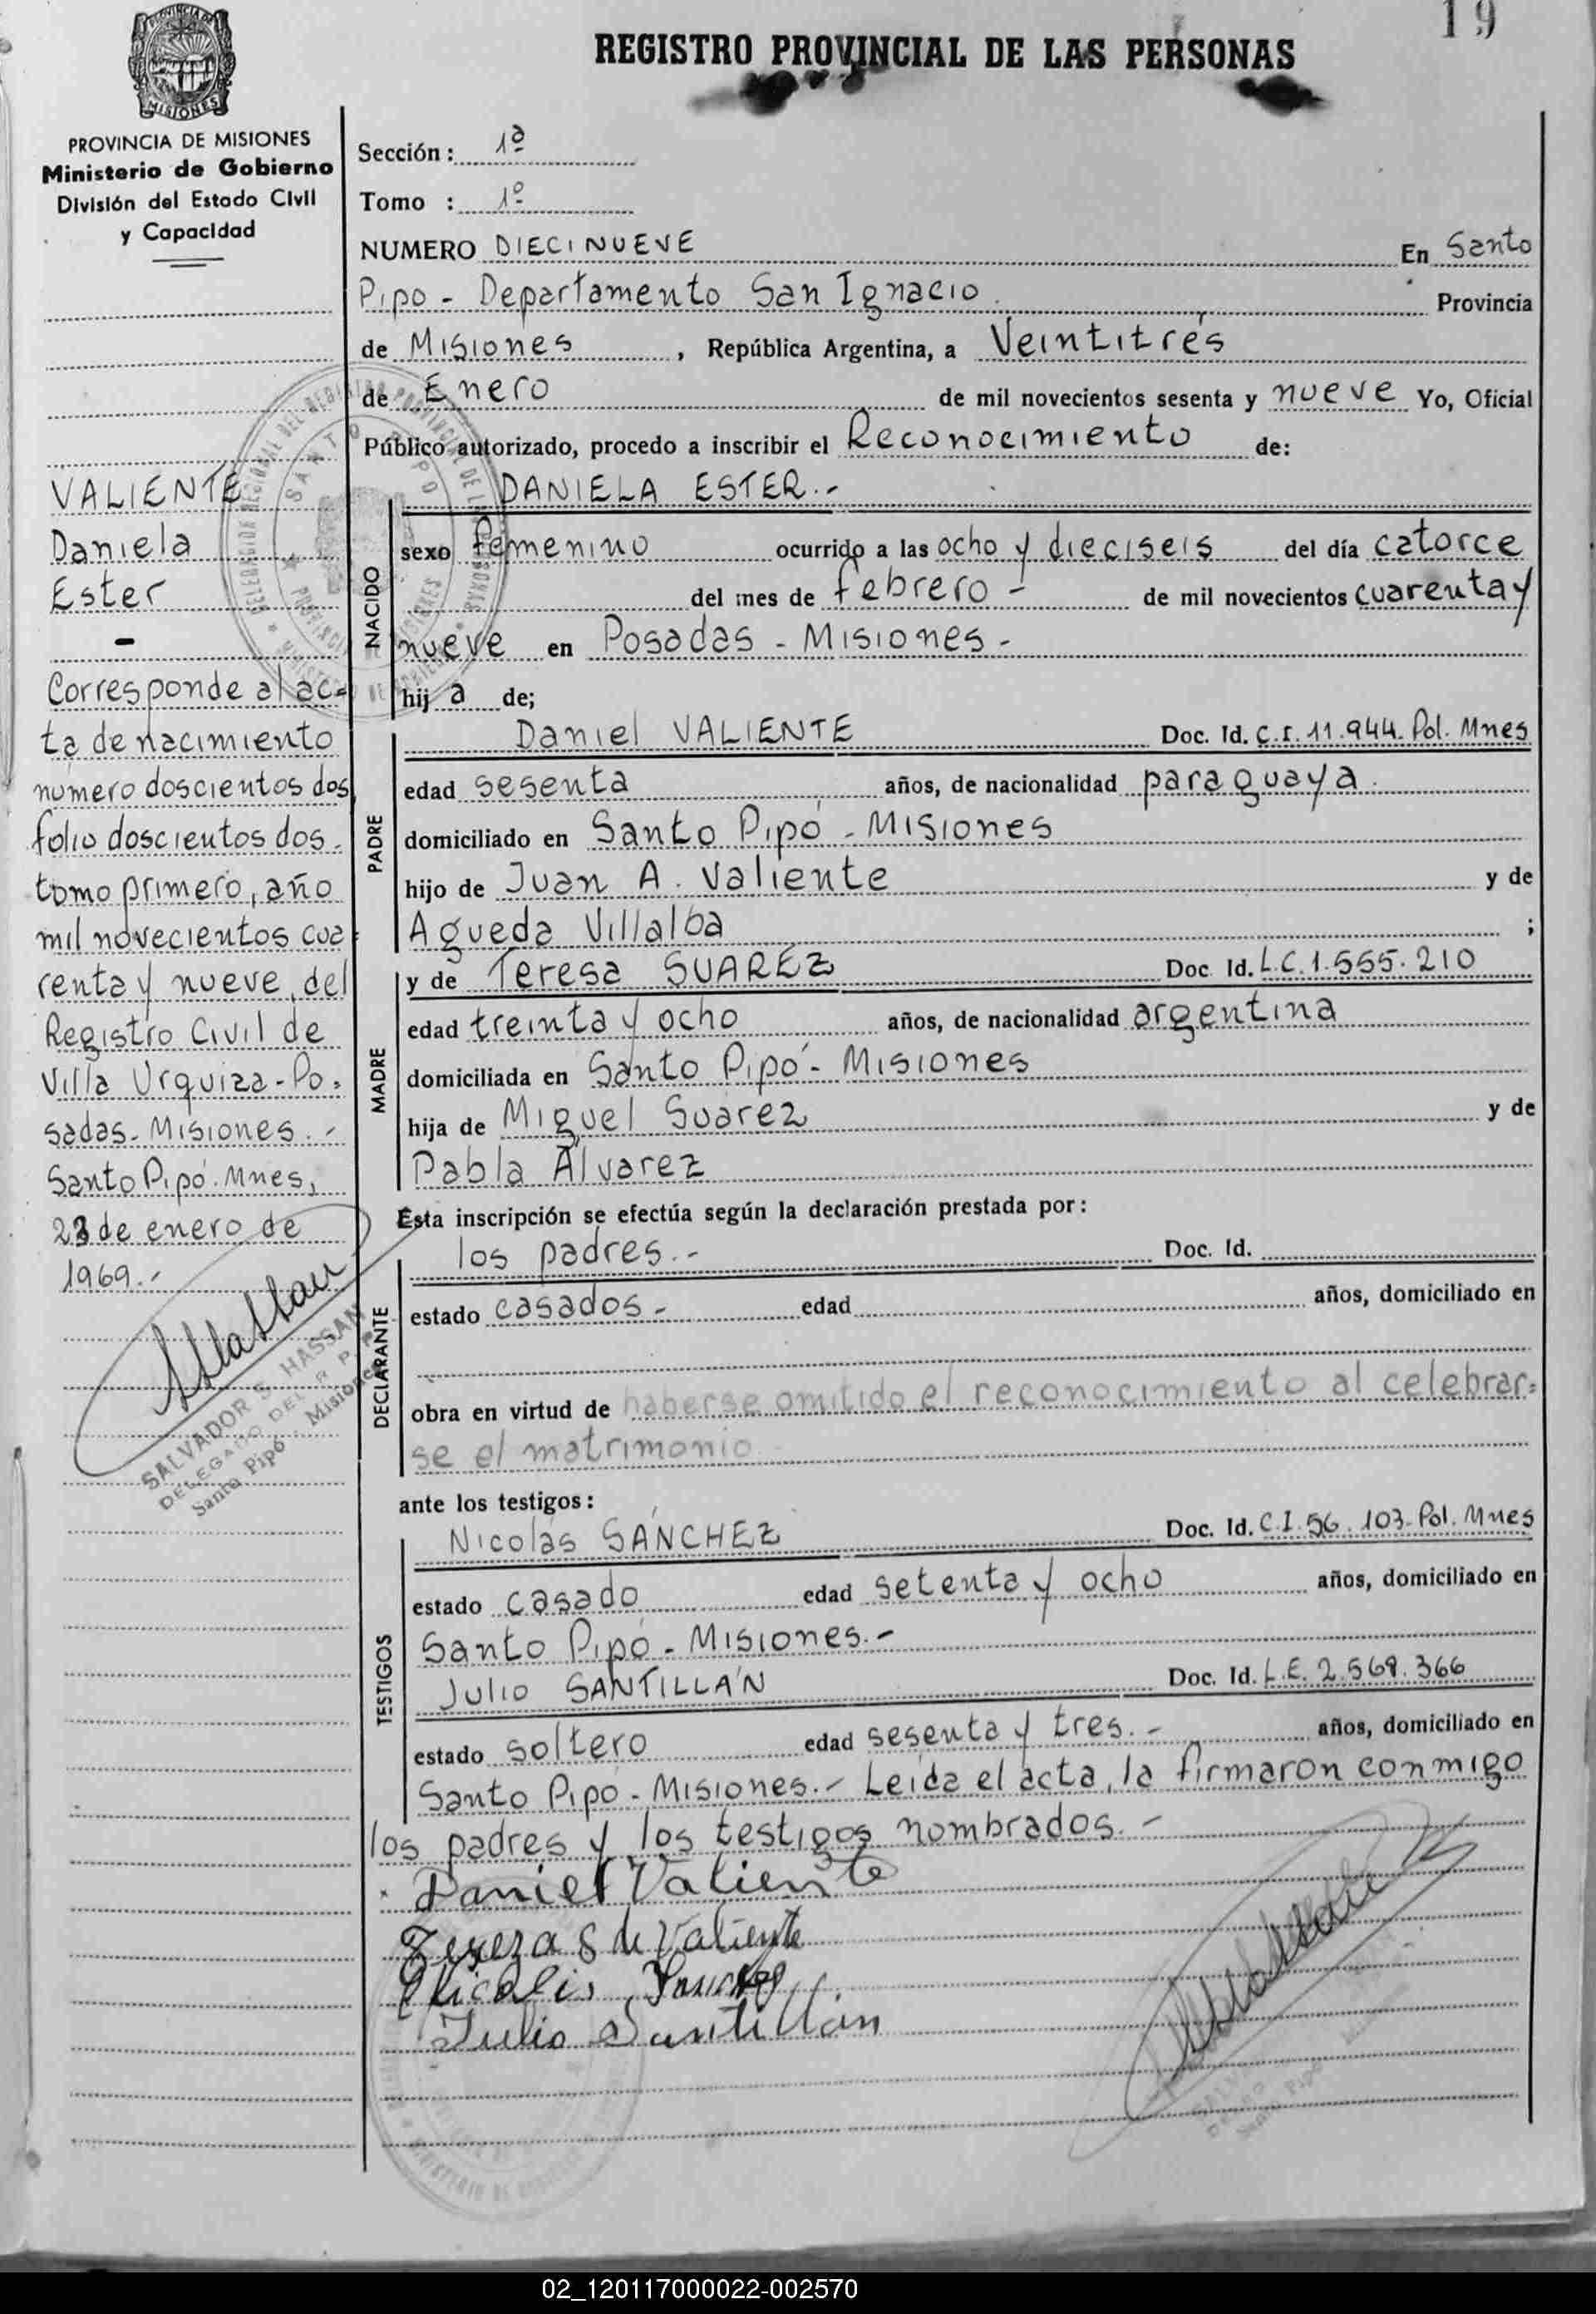 19
REGISTRO PROVINCIAL DE LAS PERSONAS
MISIONES
PROVINCIA DE MISIONES
Ministerio de Gobierno
División del Estado Civil
y Capacidad
VALIENTE
Daniela
Ester
-
Corresponde al ac-
ta de nacimiento
número doscientos dos
folio doscientos dos.
tomo primero, año
mil novecientos cua
renta y nueve, del
Registro Civil de
Villa Urquiza-Po-
sadas-Misiones.-
Santo Pipó. Mnes,
23 de enero de
1969.-
SALVADOR S. HASSAN
DELEGADO DEL R. P. P.
Santo Pipó - Misiones
Sección: 1ª
Tomo : 1º
NUMERO DIECINUEVE En Santo
Pipo - Departamento San Ignacio Provincia
de Misiones, República Argentina, a Veintitrés
de Enero de mil novecientos sesenta y nueve Yo, Oficial
Público autorizado, procedo a inscribir el Reconocimiento de:
DANIELA ESTER.-
NACIDO
sexo femenino ocurrido a las ocho y dieciseis del día catorce
del mes de febrero - de mil novecientos cuarenta y
nueve en Posadas - Misiones -
hija de;
PADRE
Daniel VALIENTE Doc. Id. C.I. 11.944. Pol. Mnes
edad sesenta años, de nacionalidad paraguaya.
domiciliado en Santo Pipó - Misiones
hijo de Juan A. Valiente y de
Agueda Villalba ;
MADRE
y de Teresa SUAREZ Doc. Id. L.C. 1.555.210
edad treinta y ocho años, de nacionalidad argentina
domiciliada en Santo Pipó - Misiones
hija de Miguel Suarez y de
Pabla Alvarez
Esta inscripción se efectúa según la declaración prestada por:
DECLARANTE
los padres.- Doc. Id.
estado casados.- edad años, domiciliado en
obra en virtud de haberse omitido el reconocimiento al celebrar-
se el matrimonio
ante los testigos:
TESTIGOS
Nicolás SÁNCHEZ Doc. Id. C.I. 56.103-Pol. Mnes
estado casado edad setenta y ocho años, domiciliado en
Santo Pipó - Misiones.-
Julio SANTILLÁN Doc. Id. L.E. 2.569.366
estado soltero edad sesenta y tres.- años, domiciliado en
Santo Pipó - Misiones.- Leída el acta, la firmaron conmigo
los padres y los testigos nombrados.-
Daniel Valiente
Tereza S de Valiente
Julio Santillán
02_120117000022-002570